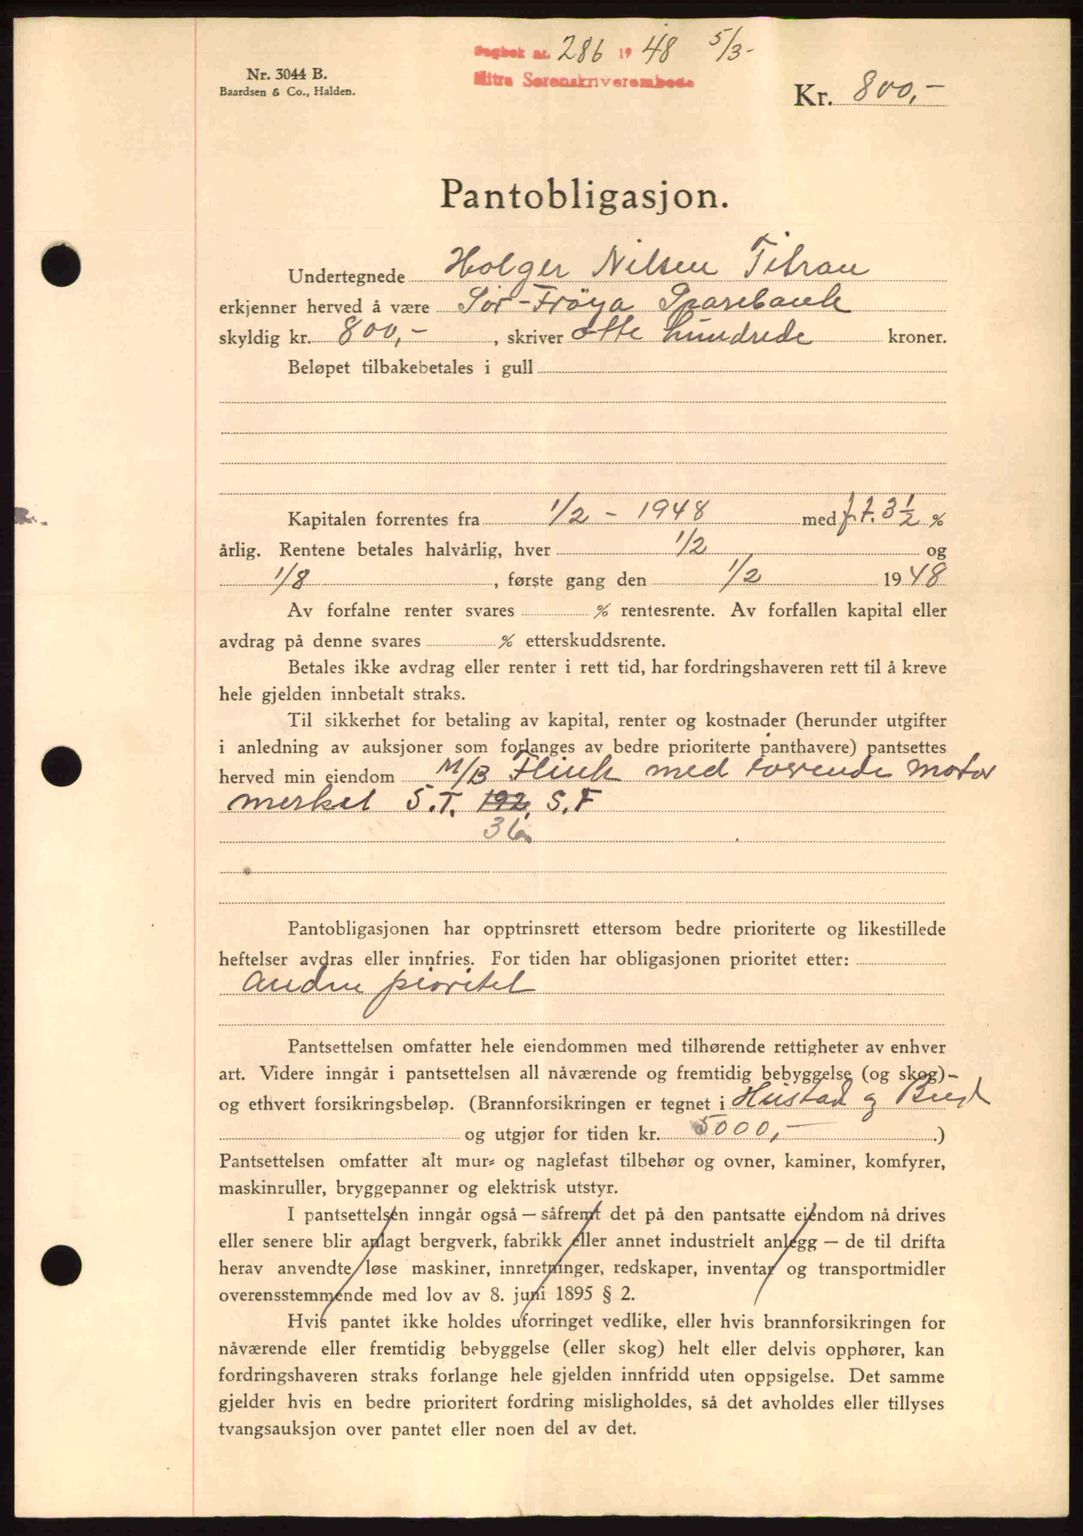 Dagbok nr. 286 19 48 5/3-
Hitra Sorenskriverembede
Nr. 3044 B.
Baardsen & Co., Halden.
Kr. 800,-
Pantobligasjon.
Undertegnede Holger Nilsen Titran
erkjenner herved å være Sør-Frøya Sparebank
skyldig kr. 800,- , skriver otte hundrede kroner.
Beløpet tilbakebetales i gull
Kapitalen forrentes fra 1/2 - 1948 med f.t. 3 1/2 %
årlig. Rentene betales halvårlig, hver 1/2 og
1/8 , første gang den 1/2 1948
Av forfalne renter svares % rentesrente. Av forfallen kapital eller
avdrag på denne svares % etterskuddsrente.
Betales ikke avdrag eller renter i rett tid, har fordringshaveren rett til å kreve
hele gjelden innbetalt straks.
Til sikkerhet for betaling av kapital, renter og kostnader (herunder utgifter
i anledning av auksjoner som forlanges av bedre prioriterte panthavere) pantsettes
herved min eiendom M/B Flink med iværende motor
merket S.T. 192. S.F
36
Pantobligasjonen har opptrinsrett ettersom bedre prioriterte og likestillede
heftelser avdras eller innfries. For tiden har obligasjonen prioritet etter:
Anden pioritet
Pantsettelsen omfatter hele eiendommen med tilhørende rettigheter av enhver
art. Videre inngår i pantsettelsen all nåværende og fremtidig bebyggelse (og skog)-
og ethvert forsikringsbeløp. (Brannforsikringen er tegnet i Hustad og Bud
og utgjør for tiden kr. 5000,- .)
Pantsettelsen omfatter alt mur- og naglefast tilbehør og ovner, kaminer, komfyrer,
maskinruller, bryggepanner og elektrisk utstyr.
I pantsettelsen inngår også — såfremt det på den pantsatte eiendom nå drives
eller senere blir anlagt bergverk, fabrikk eller annet industrielt anlegg — de til drifta
herav anvendte løse maskiner, innretninger, redskaper, inventar og transportmidler
overensstemmende med lov av 8. juni 1895 § 2.
Hvis pantet ikke holdes uforringet vedlike, eller hvis brannforsikringen for
nåværende eller fremtidig bebyggelse (eller skog) helt eller delvis opphører, kan
fordringshaveren straks forlange hele gjelden innfridd uten oppsigelse. Det samme
gjelder hvis en bedre prioritert fordring misligholdes, så det avholdes eller tillyses
tvangsauksjon over pantet eller noen del av det.